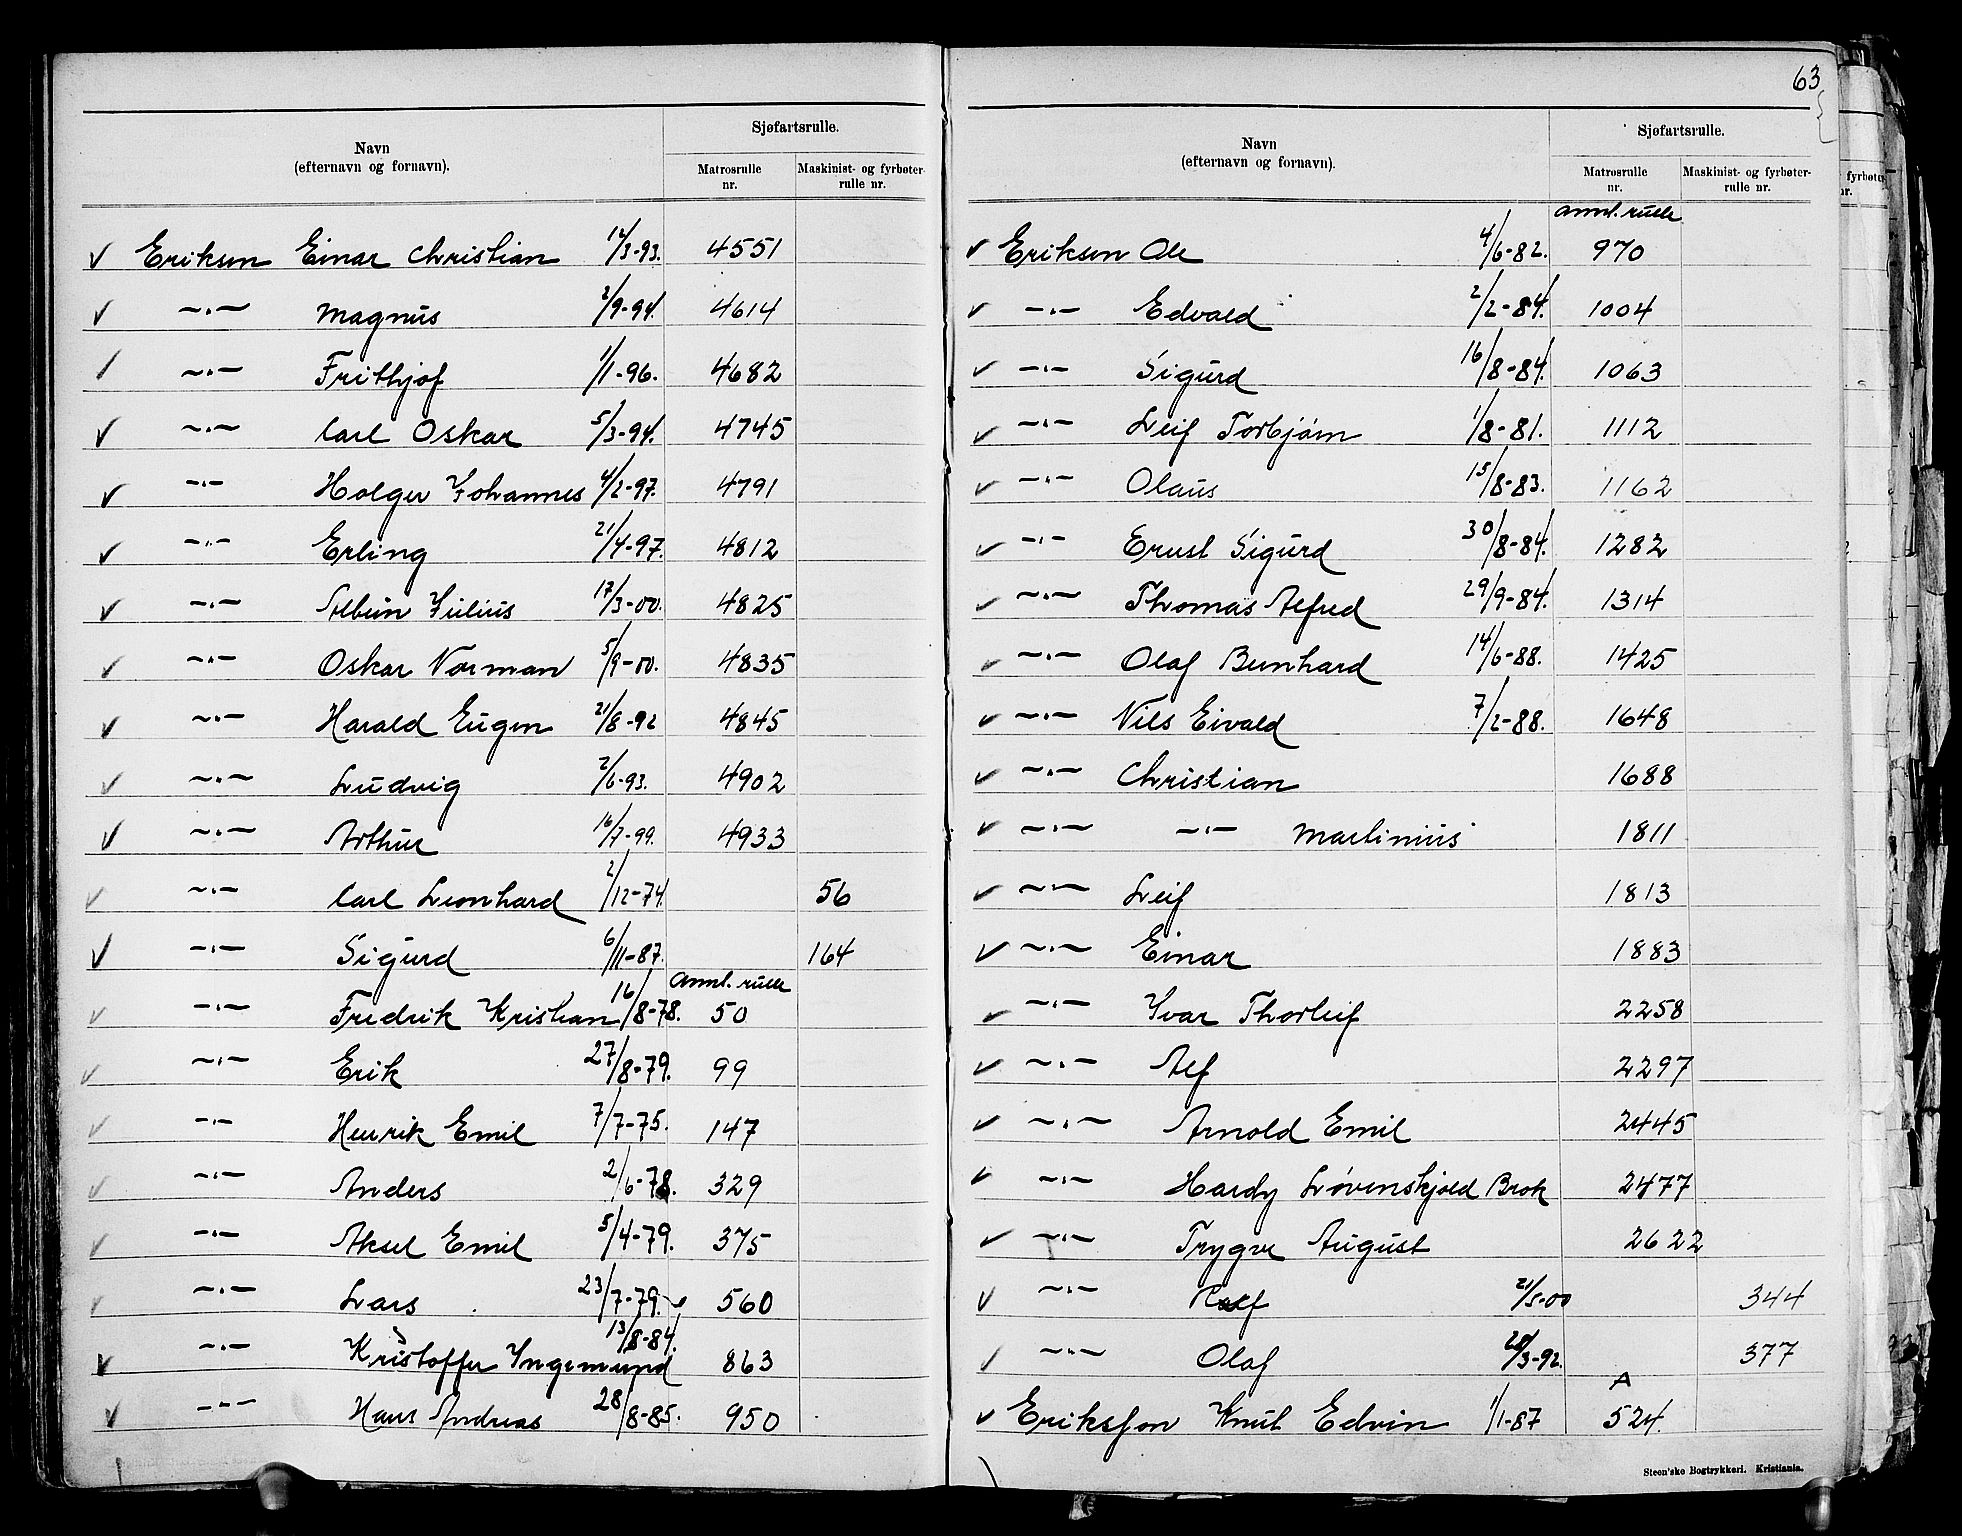 Navn
(efternavn og fornavn).
Sjøfartsrulle.
Matrosrulle nr.
Maskinist- og fyrbøter-rulle nr.
✓ Eriksen Einar Christian 12/3-93. 4551
✓ -"- Magnus 2/9-94. 4614
✓ -"- Frithjof 1/1-96. 4682
✓ -"- Carl Oskar 5/3-94. 4745
✓ -"- Holger Johannes 4/2-97. 4791
✓ -"- Erling 21/4-97. 4812
✓ -"- Albin Julius 17/3-00. 4825
✓ -"- Oskar Norman 5/9-00. 4835
✓ -"- Harald Eugen 21/8-92 4845
✓ -"- Ludvig 2/6-93. 4902
✓ -"- Arthur 16/7-99. 4933
✓ -"- Carl Leonhard 2/12-74. 56
✓ -"- Sigurd 6/11-87. 164
Annl. rulle
✓ -"- Fredrik Kristian 16/8-78. 50
✓ -"- Erik 27/8-79. 99
✓ -"- Henrik Emil 7/7-75. 147
✓ -"- Anders 2/6-78. 329
✓ -"- Aksel Emil 5/4-79. 375
✓ -"- Lars 23/7-79. 560
✓ -"- Kristoffer Ingemund 13/8-84. 863
✓ -"- Hans Andreas 28/8-85. 950
63
Navn
(efternavn og fornavn).
Sjøfartsrulle.
Matrosrulle nr.
Maskinist- og fyrbøter-rulle nr.
Annl. rulle
✓ Eriksen Ole 4/6-82. 970
✓ -"- Edvald 2/2-84. 1004
✓ -"- Sigurd 16/8-84. 1063
✓ -"- Leif Torbjørn 1/8-81. 1112
✓ -"- Olaus 15/8-83. 1162
✓ -"- Ernst Sigurd 30/8-84. 1282
✓ -"- Thomas Alfred 29/9-84. 1314
✓ -"- Olaf Bernhard 14/6-88. 1425
✓ -"- Nils Eivald 7/2-88. 1648
✓ -"- Christian 1688
✓ -"- -"- Martinius 1811
✓ -"- Leif 1813
✓ -"- Einar 1883
✓ -"- Ivar Thorleif 2258
✓ -"- Alf 2297
✓ -"- Arnold Emil 2445
✓ -"- Hardy Løvenskjold Brok 2477
✓ -"- Trygve August 2622
✓ -"- Rolf 21/5-00 344
✓ -"- Olaf /3-92. 377
A
✓ Eriksson Knut Edvin 1/1-87 524.
Steen'ske Bogtrykkeri. Kristiania.